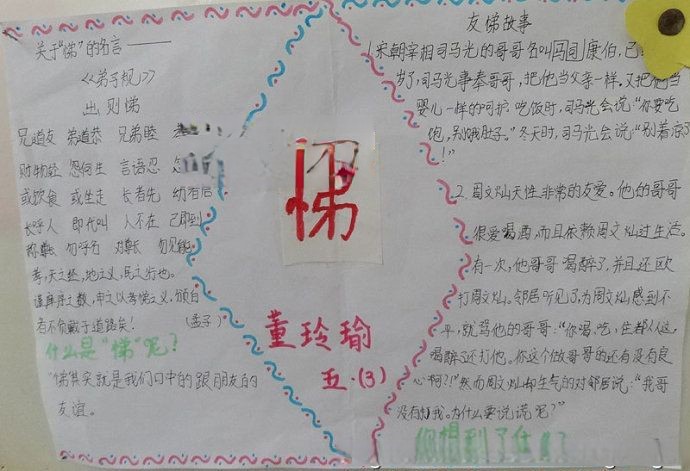 关于“悌”的名言——
《弟子规》
出则悌
兄道友 弟道恭 兄弟睦
财物轻 怨何生 言语忍
或饮食 或坐走 长者先 幼者后
长呼人 即代叫 人不在 己即到
称尊长 勿呼名 对尊长 勿见能
孝,天之经,地之义,民之行也。
谨庠序之教,申之以孝悌之义,颁白
者不负戴于道路矣! (孟子)
什么是“悌”呢?
“悌其实就是我们口中的跟朋友的
友谊。
悌
董玲瑜
五.(3)
友悌故事
1宋朝宰相司马光的哥哥名叫司马康伯,已
岁了,司马光事奉哥哥,把他当父亲一样,又把他当
婴儿一样的呵护,吃饭时,司马光会说:“你要吃
饱,别饿肚子。”冬天时,司马光会说:“别着凉了
!”
2.周文灿天性非常的友爱。他的哥哥
很爱喝酒,而且依赖周文灿过生活。
有一次,他哥哥喝醉了,并且还欧
打周文灿。邻居听见了,为周文灿感到不
平,就骂他的哥哥:“你喝,吃,住都从这,
喝醉了还打他。你这个做哥哥的还有没有良
心啊?!”然而周文灿却生气的对邻居说:“我哥
没有打我。为什么要说谎呢?”
你想到了什